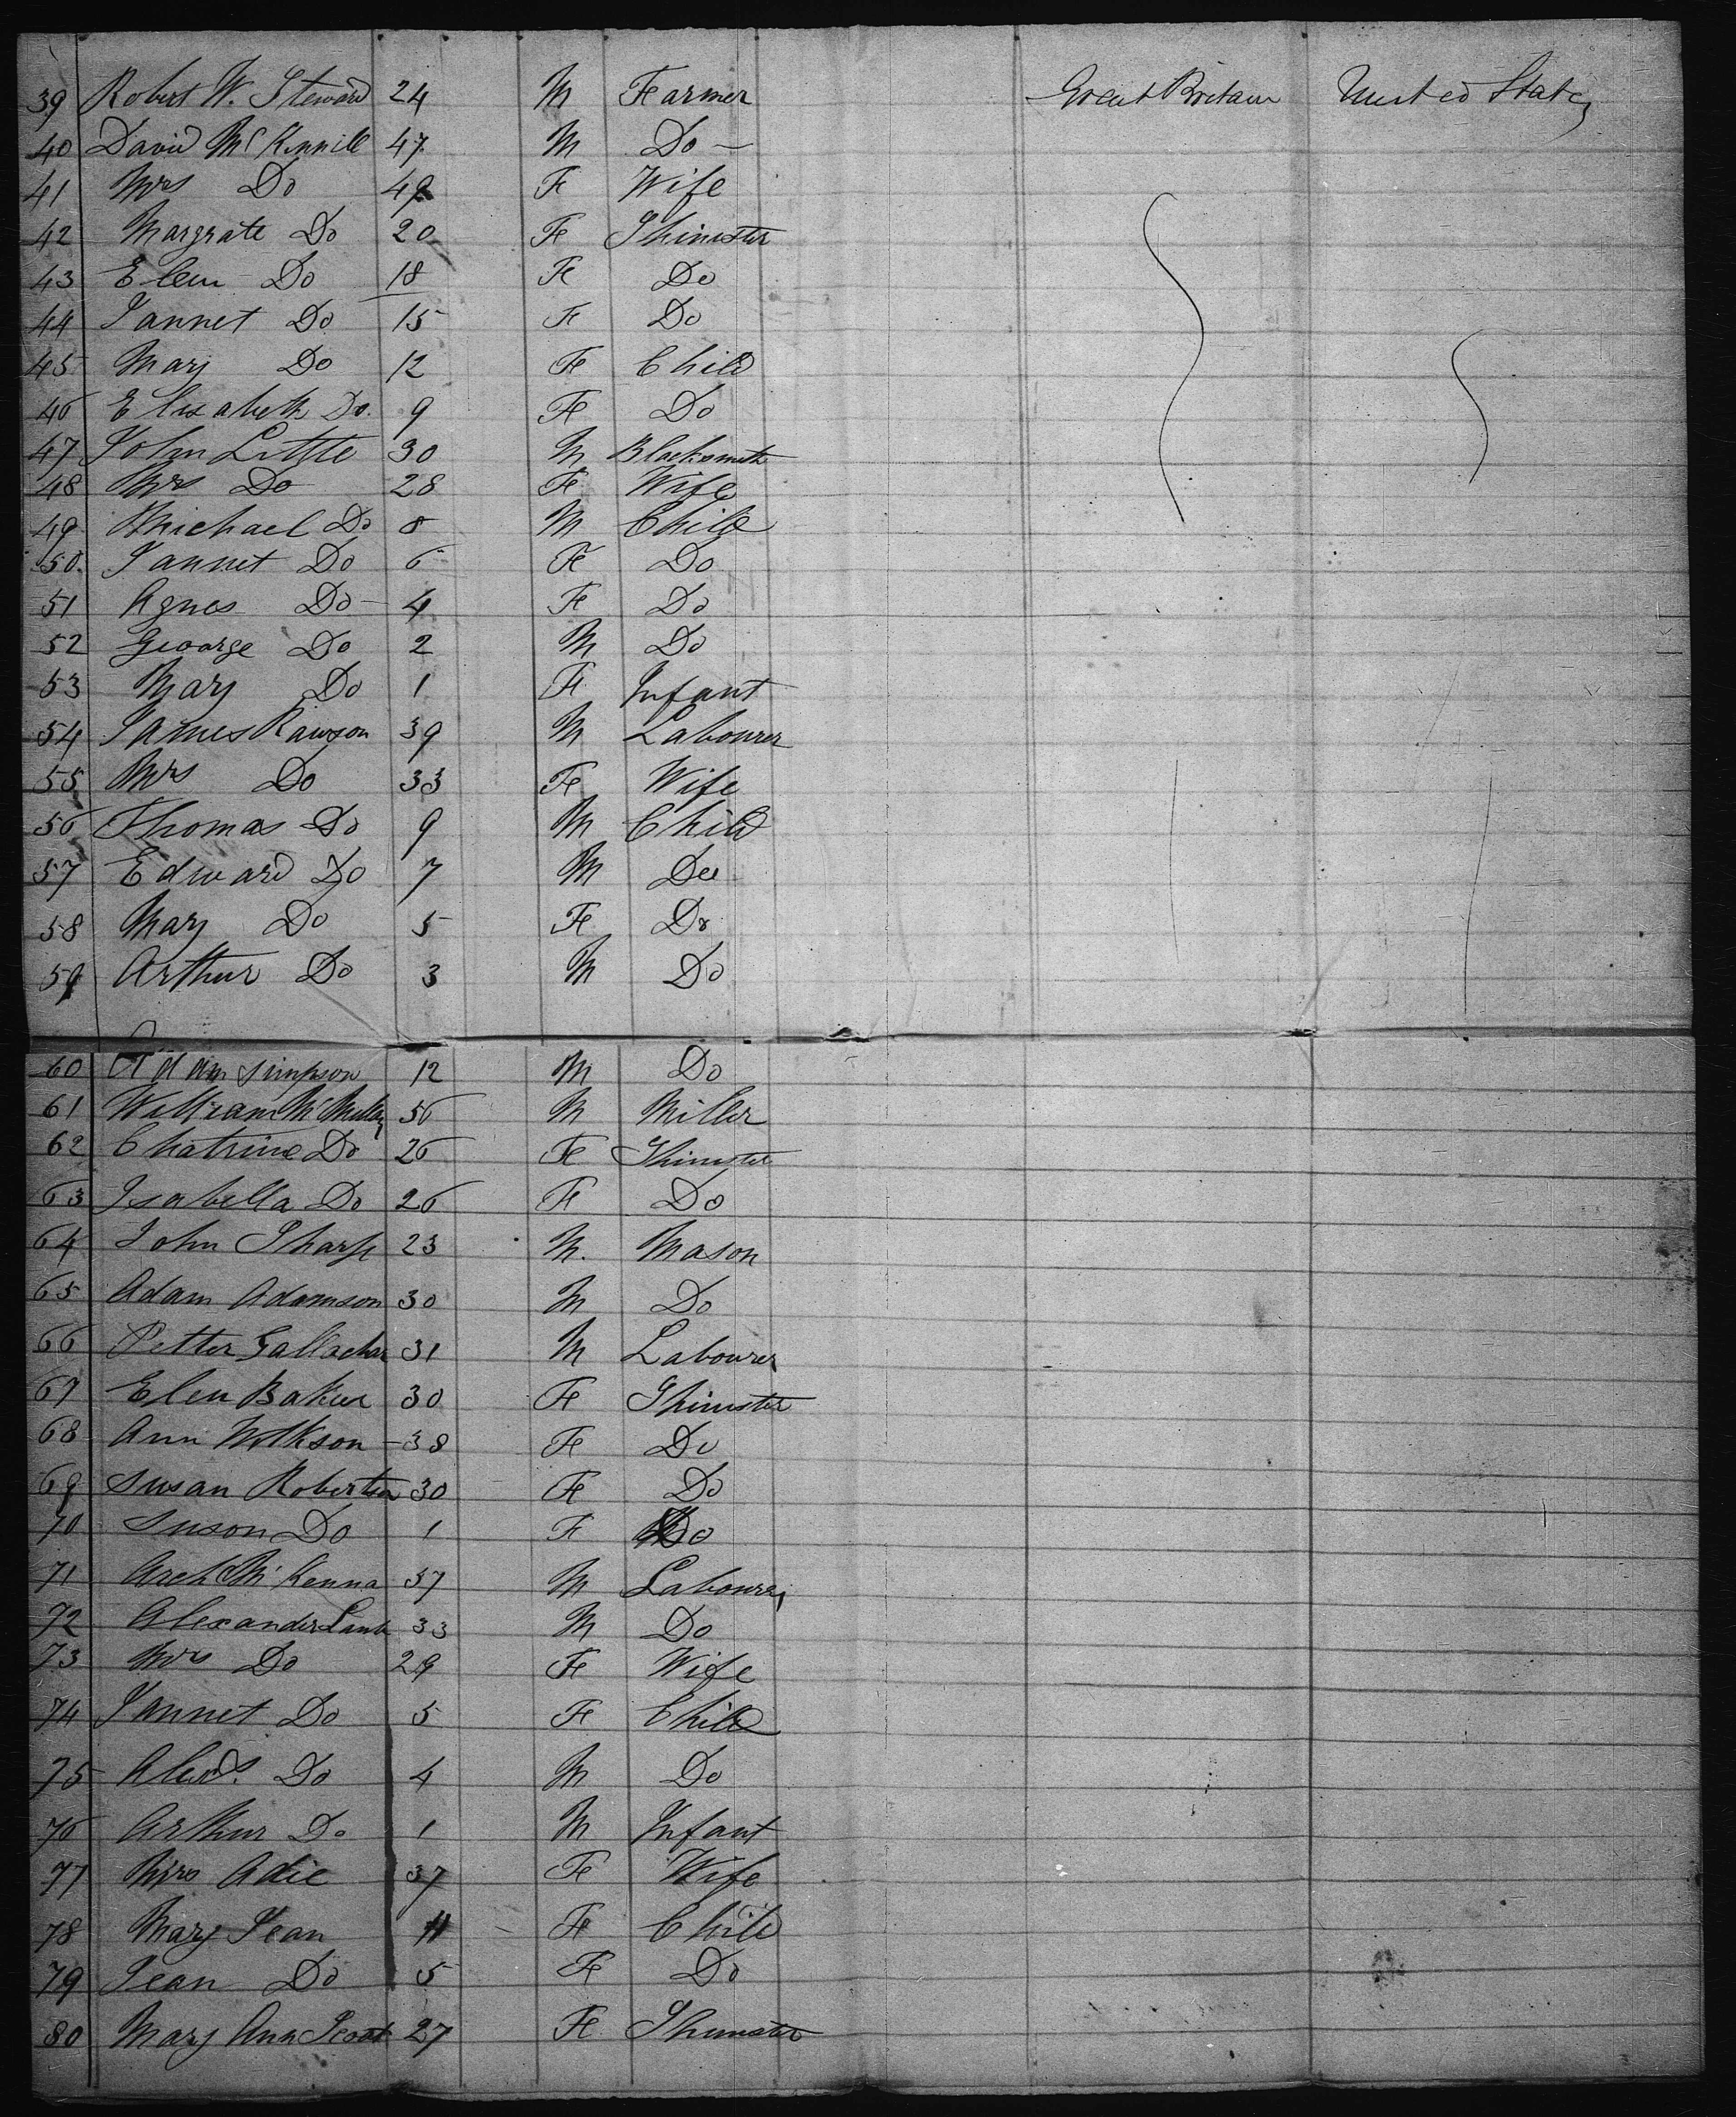 39 Robert W. Steward 24 M Farmer Great Britain United States
40 David McKennill 47 M Do
41 Mrs Do 49 Fe Wife
42 Margrate Do 20 Fe Shinister
43 Elen Do 18 Fe Do
44 Jannet Do 15 Fe Do
45 Mary Do 12 Fe Child
46 Elisabeth Do. 9 Fe Do
47 John Little 30 M Blacksmith
48 Mrs Do 28 Fe Wife
49 Michael Do 8 M Child
50 Jannet Do 6 Fe Do
51 Agnes Do 4 Fe Do
52 Geoarge Do 2 M Do
53 Mary Do 1 Fe Infant
54 James Rawson 39 M Labourer
55 Mrs Do 33 Fe Wife
56 Thomas Do 9 M Child
57 Edward Do 7 M Do
58 Mary Do 5 Fe Do
59 Arthur Do 3 M Do
60 Adam Simpson 12 M Do
61 William McMillan 56 M Miller
62 Chatrine Do 26 Fe Shinister
63 Isabella Do 26 Fe Do
64 John Sharp 23 M. Mason
65 Adam Adamson 30 M Do
66 Petter Gallachar 31 M Labourer
67 Elen Baker 30 Fe Shinister
68 Ann Wilkson 38 Fe Do
69 Susan Robertson 30 Fe Do
70 Suson Do 1 Fe Do
71 Arch McKenna 37 M Labourer
72 Alexander Lamb 33 M Do
73 Mrs Do 29 Fe Wife
74 Jannet Do 5 Fe Child
75 Alexd. Do 4 M Do
76 Arthur Do 1 M Infant
77 Mrs Adie 37 Fe Wife
78 Mary Jean 11 Fe Child
79 Jean Do 5 Fe Do
80 Mary Ann Scoot 27 Fe Shinister